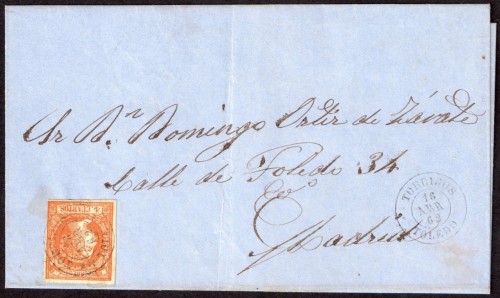 Sr Dn. Domingo Ortiz de Zárate
Calle de Toledo 34
Co
Madrid
TORRIJOS
16
ABR
62
TOLEDO
4 CUARTOS